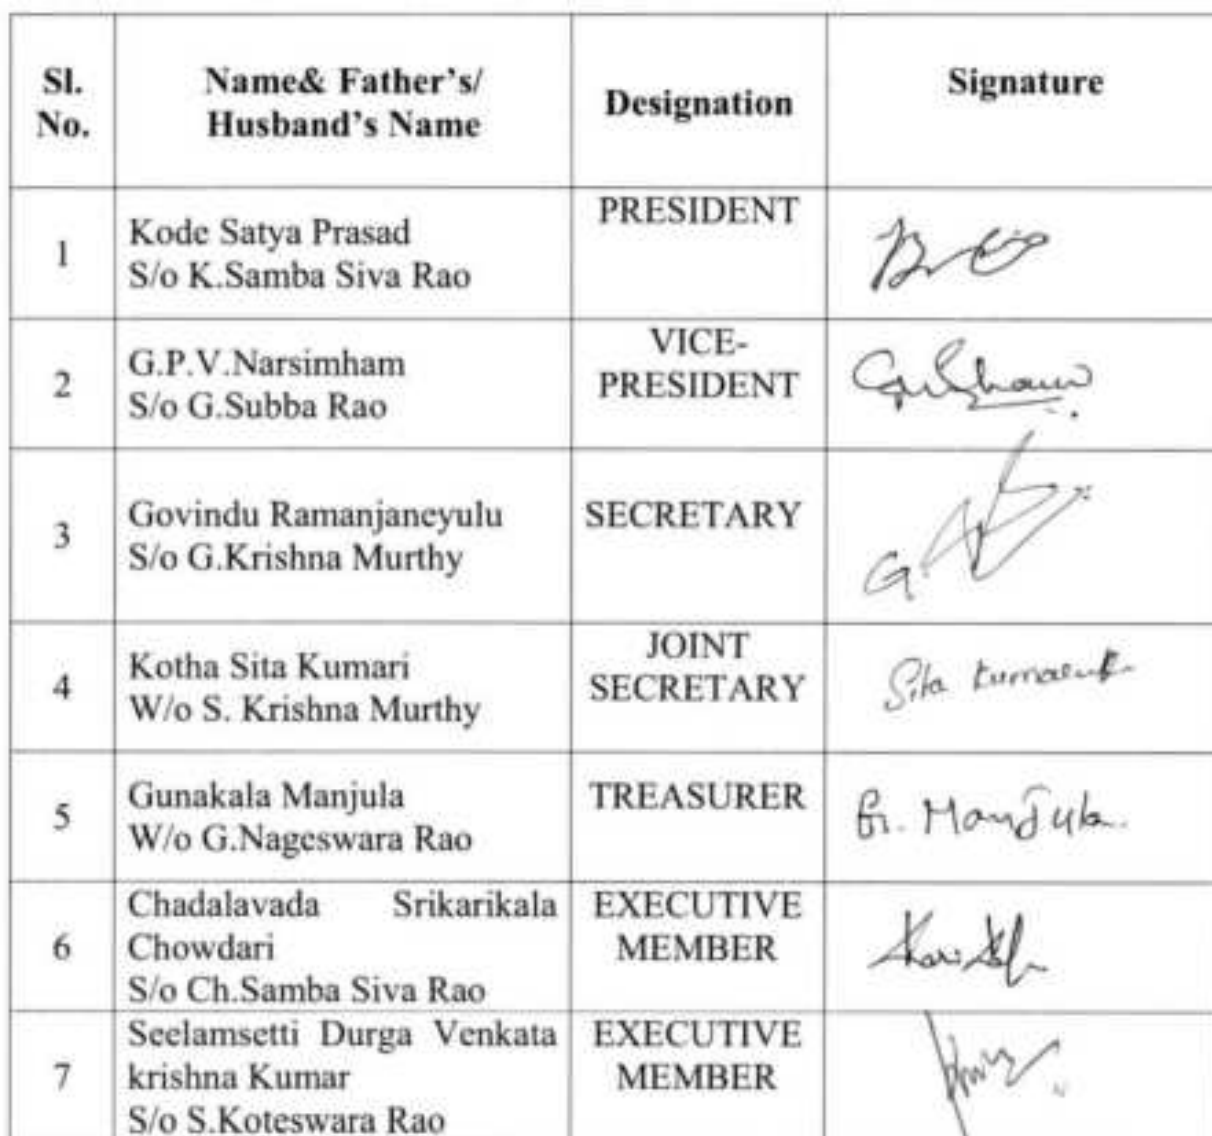 Sl. No.
Name& Father's/ Husband's Name
Designation
Signature
1
Kode Satya Prasad
S/o K.Samba Siva Rao
PRESIDENT
2
G.P.V.Narsimham
S/o G.Subba Rao
VICE-
PRESIDENT
3
Govindu Ramanjaneyulu
S/o G.Krishna Murthy
SECRETARY
G.
4
Kotha Sita Kumari
W/o S. Krishna Murthy
JOINT
SECRETARY
Sita Kumari K
5
Gunakala Manjula
W/o G.Nageswara Rao
TREASURER
G. Manjula
6
Chadalavada Srikarikala
Chowdari
S/o Ch.Samba Siva Rao
EXECUTIVE
MEMBER
7
Seelamsetti Durga Venkata
krishna Kumar
S/o S.Koteswara Rao
EXECUTIVE
MEMBER